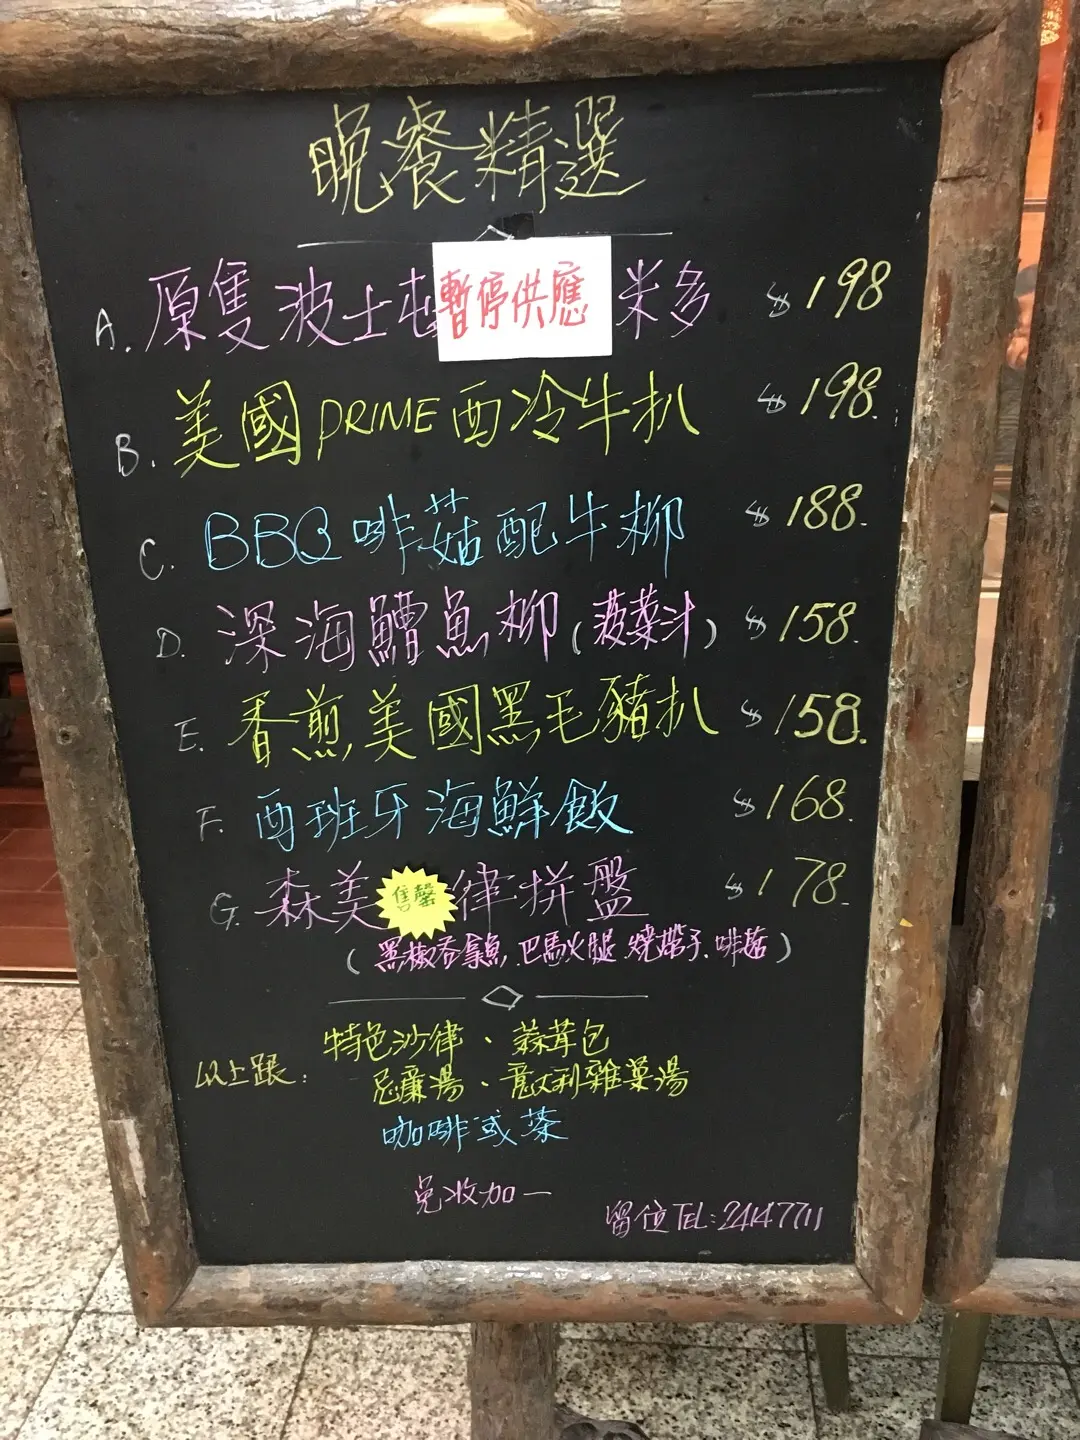 晚餐精選
A. 原隻波士屯 暫停供應 米多 $198
B. 美國PRIME西冷牛扒 $198.
C. BBQ啡菇配牛柳 $188.
D. 深海鱈魚柳(菠菜汁) $158.
E. 香煎美國黑毛豬扒 $158.
F. 西班牙海鮮飯 $168.
G. 森美 售罄 律拼盤 $178.
(黑椒吞拿魚.巴馬火腿.燒茄子.啡菇)
以上跟: 特色沙律、蒜茸包
忌廉湯、意大利雜菜湯
咖啡或茶
免收加一
留位TEL:24147711